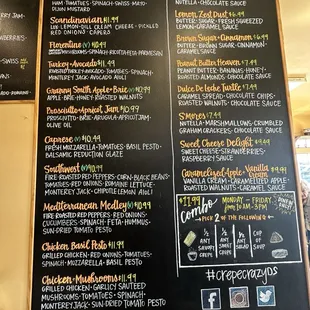 HAM·TOMATOES·SPINACH·SWISS·MAYO
MUSTARD
Scandinavian $11.99
LOX·LEMON·DILL CREAM CHEESE·PICKLED
RED ONIONS·CAPERS
Florentine $10.49
MUSHROOMS·SPINACH·RICOTTA·FETA·PARMESAN
Turkey·Avocado $11.49
TURKEY·AVOCADO·TOMATOES·SPINACH·
MONTEREY JACK·AVOCADO AIOLI
Granny Smith Apple·Brie $10.99
APPLE·BRIE·HONEY·ROASTED WALNUTS
Prosciutto·Apricot Jam $10.99
PROSCIUTTO·BRIE·ARUGULA·APRICOT JAM·
OLIVE OIL
Caprese $10.49
FRESH MOZZARELLA·TOMATOES·BASIL PESTO·
BALSAMIC REDUCTION GLAZE
Southwest $10.49
FIRE-ROASTED RED PEPPERS·CORN·BLACK BEANS·
TOMATOES·RED ONIONS·ROMAINE LETTUCE·
MONTEREY JACK·CHIPOTLE AIOLI
Mediterranean Medley $10.49
FIRE-ROASTED RED PEPPERS·RED ONIONS·
CUCUMBERS·SPINACH·FETA·HUMMUS·
SUN-DRIED TOMATO PESTO
Chicken Basil Pesto $11.49
GRILLED CHICKEN·RED ONIONS·TOMATOES·
SPINACH·MOZZARELLA·BASIL PESTO
Chicken·Mushrooms $11.99
GRILLED CHICKEN·GARLICY SAUTEED
MUSHROOMS·TOMATOES·SPINACH·
MONTEREY JACK·SUN-DRIED TOMATO PESTO
NUTELLA·CHOCOLATE SAUCE
Lemon Zest Dust $6.49
BUTTER·SUGAR·FRESH SQUEEZED
LEMON·CARAMEL SAUCE
Brown Sugar·Cinnamon $6.99
BUTTER·BROWN SUGAR·CINNAMON·
CARAMEL SAUCE
Peanut Butter Heaven $7.49
PEANUT BUTTER·BANANAS·HONEY·
ROASTED ALMONDS·CHOCOLATE SAUCE
Dulce De Leche Turtle $7.49
CARAMEL SPREAD·CHOCOLATE CHIPS·
ROASTED WALNUTS·CHOCOLATE SAUCE
S'Mores $7.49
NUTELLA·MARSHMALLOWS·CRUMBLED
GRAHAM CRACKERS·CHOCOLATE SAUCE
Sweet Cheese Delight $9.49
SWEET CHEESE·STRAWBERRIES·
RASPBERRY SAUCE
Caramelized Apple·Vanilla Cream $9.49
VANILLA CREAM·CARAMELIZED APPLE·
ROASTED WALNUTS·CARAMEL SAUCE
$11.99
Combo
MONDAY - FRIDAY
from 10AM-3PM
PICK 2 OF THE FOLLOWING
1/2
ANY
SAVORY
CREPE
1/2
ANY
SWEET
CREPE
1/2
ANY
SALAD
CUP
OF
SOUP
#CREPECRAZYDS